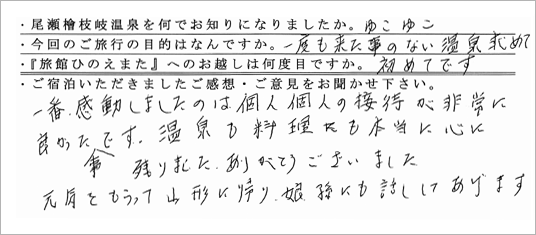 ・尾瀬檜枝岐温泉を何でお知りになりましたか。ゆこゆこ
・今回のご旅行の目的はなんですか。一度も来た事のない温泉求めて
・『旅館ひのえまた』へのお越しは何度目ですか。初めてです
・ご宿泊いただきましたご感想・ご意見をお聞かせ下さい。
一番、感動しましたのは個人個人の接待が非常に
良かった事です。温泉も料理も本当に心に
残りました、ありがとうございました
元気をもらって山形に帰り、娘、孫にも話してあげます